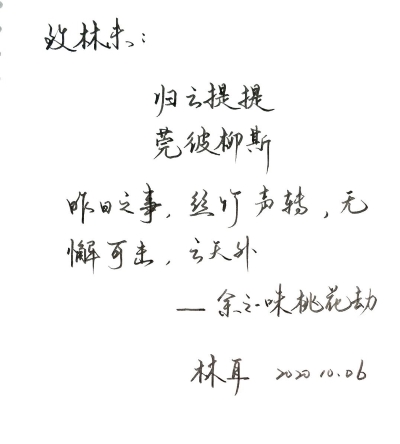 致林未:
归云提提
莞彼柳斯
昨日之事,丝竹声转,无
懈可击,云天外
— 余之味桃花劫
林耳 2020 10.06